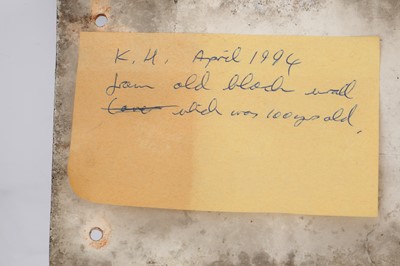 K.H. April 1994
from old block wall
which was 100 yrs old.